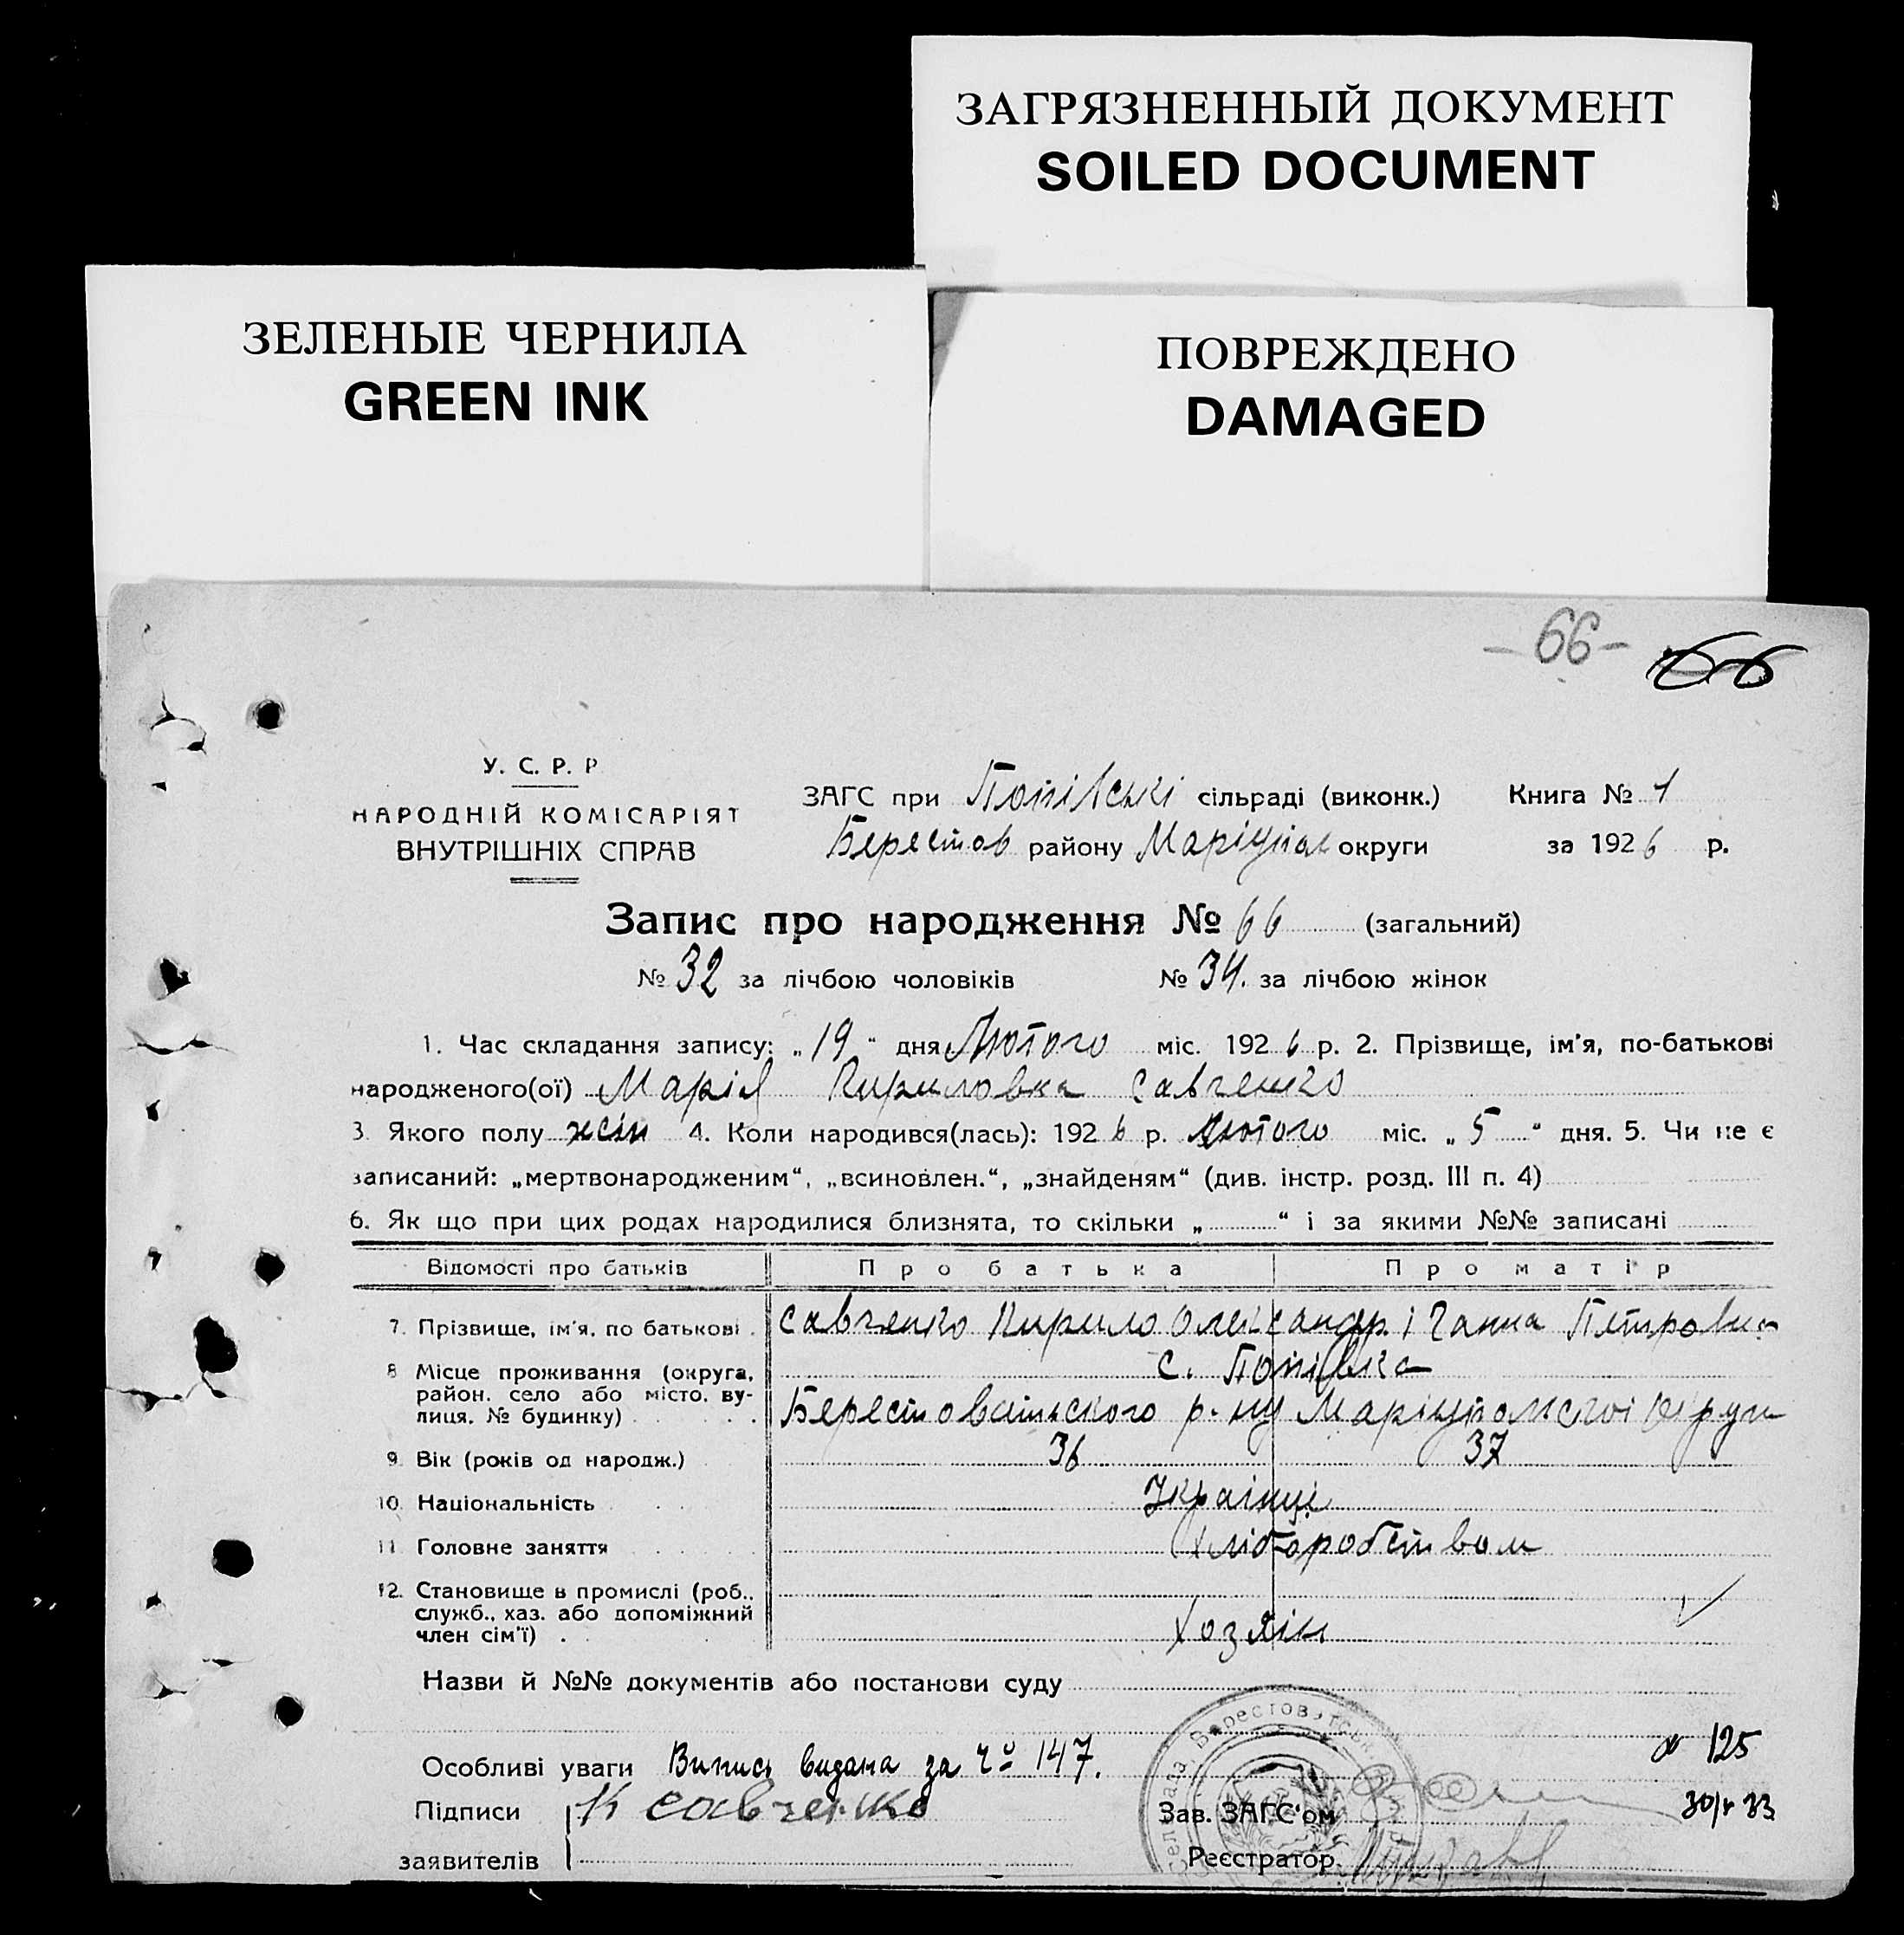 ЗАГРЯЗНЕННЫЙ ДОКУМЕНТ
SOILED DOCUMENT
ЗЕЛЕНЫЕ ЧЕРНИЛА
GREEN INK
ПОВРЕЖДЕНО
DAMAGED
- 66 - 66
У. С. Р. Р
НАРОДНІЙ КОМІСАРІЯТ
ВНУТРІШНІХ СПРАВ
ЗАГС при Попівські сільраді (виконк.) Книга № 1
Берестов району Маріупол округи за 1926 р.
Запис про народження № 66 (загальний)
№ 32 за лічбою чоловіків № 34. за лічбою жінок
1. Час складання запису: „19" дня Лютого міс. 1926 р. 2. Прізвище, ім'я, по-батькові
народженого(ої) Марія Кириловна Савченко
3. Якого полу жін 4. Коли народився(лась): 1926 р. Лютого міс. „5" дня. 5. Чи не є
записаний: „мертвонародженим", „всиновлен.", „знайденям" (див. інстр. розд. III п. 4)
6. Як що при цих родах народилися близнята, то скільки „ " і за якими №№ записані
Відомості про батьків Про батька Про матір
7. Прізвище, ім'я, по батькові Савченко Кирило Олександр і Ганна Петровна
8 Місце проживання (округа, с. Попівка
район, село або місто, ву-
лиця, № будинку) Берестоватського р-ну Маріупольскої Округи
9. Вік (років од народж.) 36 37
10. Національність Українці
11 Головне заняття Хліборобством
12. Становище в промислі (роб.,
служб., хаз. або допоміжний
член сім'ї) Хозяїн
Назви й №№ документів або постанови суду
125
Особливі уваги Випись видана за 147.
Підписи К Савченко Зав. ЗАГС'ом
заявителів Реєстратор